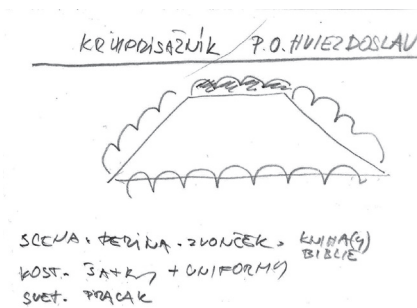 KRIVOPRISAŽNÍK P.O. HVIEZDOSLAV
SCENA. PERINA. ZVONČEK. KNIHA(Y)
BIBLIE
KOST. ŠATKY + UNIFORMY
SVET. PRACAK